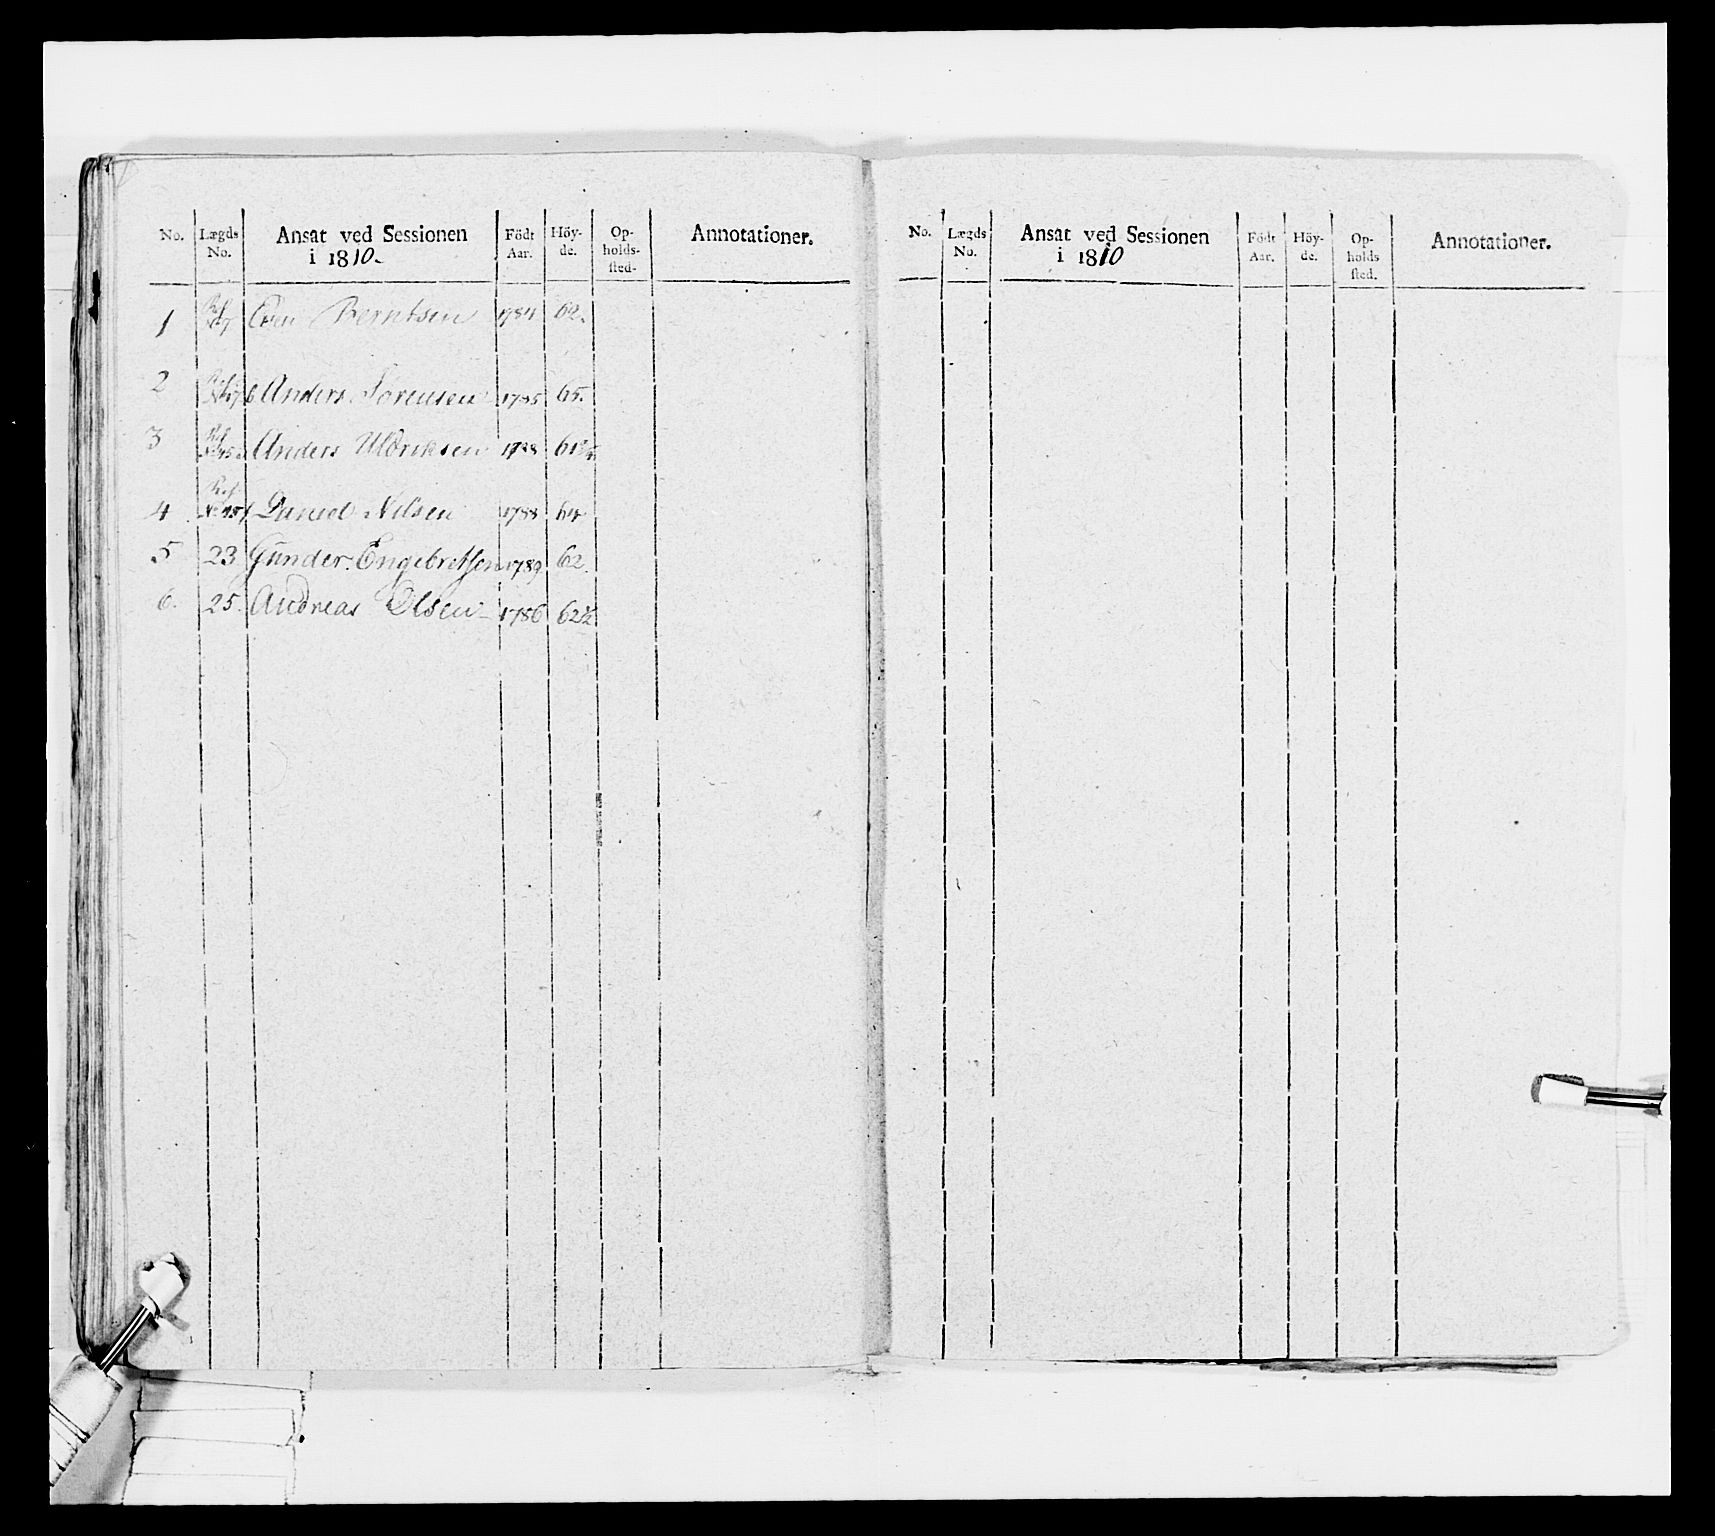 No. Lægds No. Ansat ved Sessionen i 1810. Födt Aar. Höy-de. Op-holds-sted. Annotationer.
1 Ref 7 Even Berntsen 1784 62.
2 Anders Sörensen 1785 65.
3 Anders Uldriksen 1788
4 Ref Daniel Nilsen 1788 64
5 23 Gunder Engebretsen 1789 62.
6. 25. Andreas Olsen 1786 62½
No. Lægds No. Ansat ved Sessionen i 1810 Födt Aar. Höy-de. Op-holds sted. Annotationer.